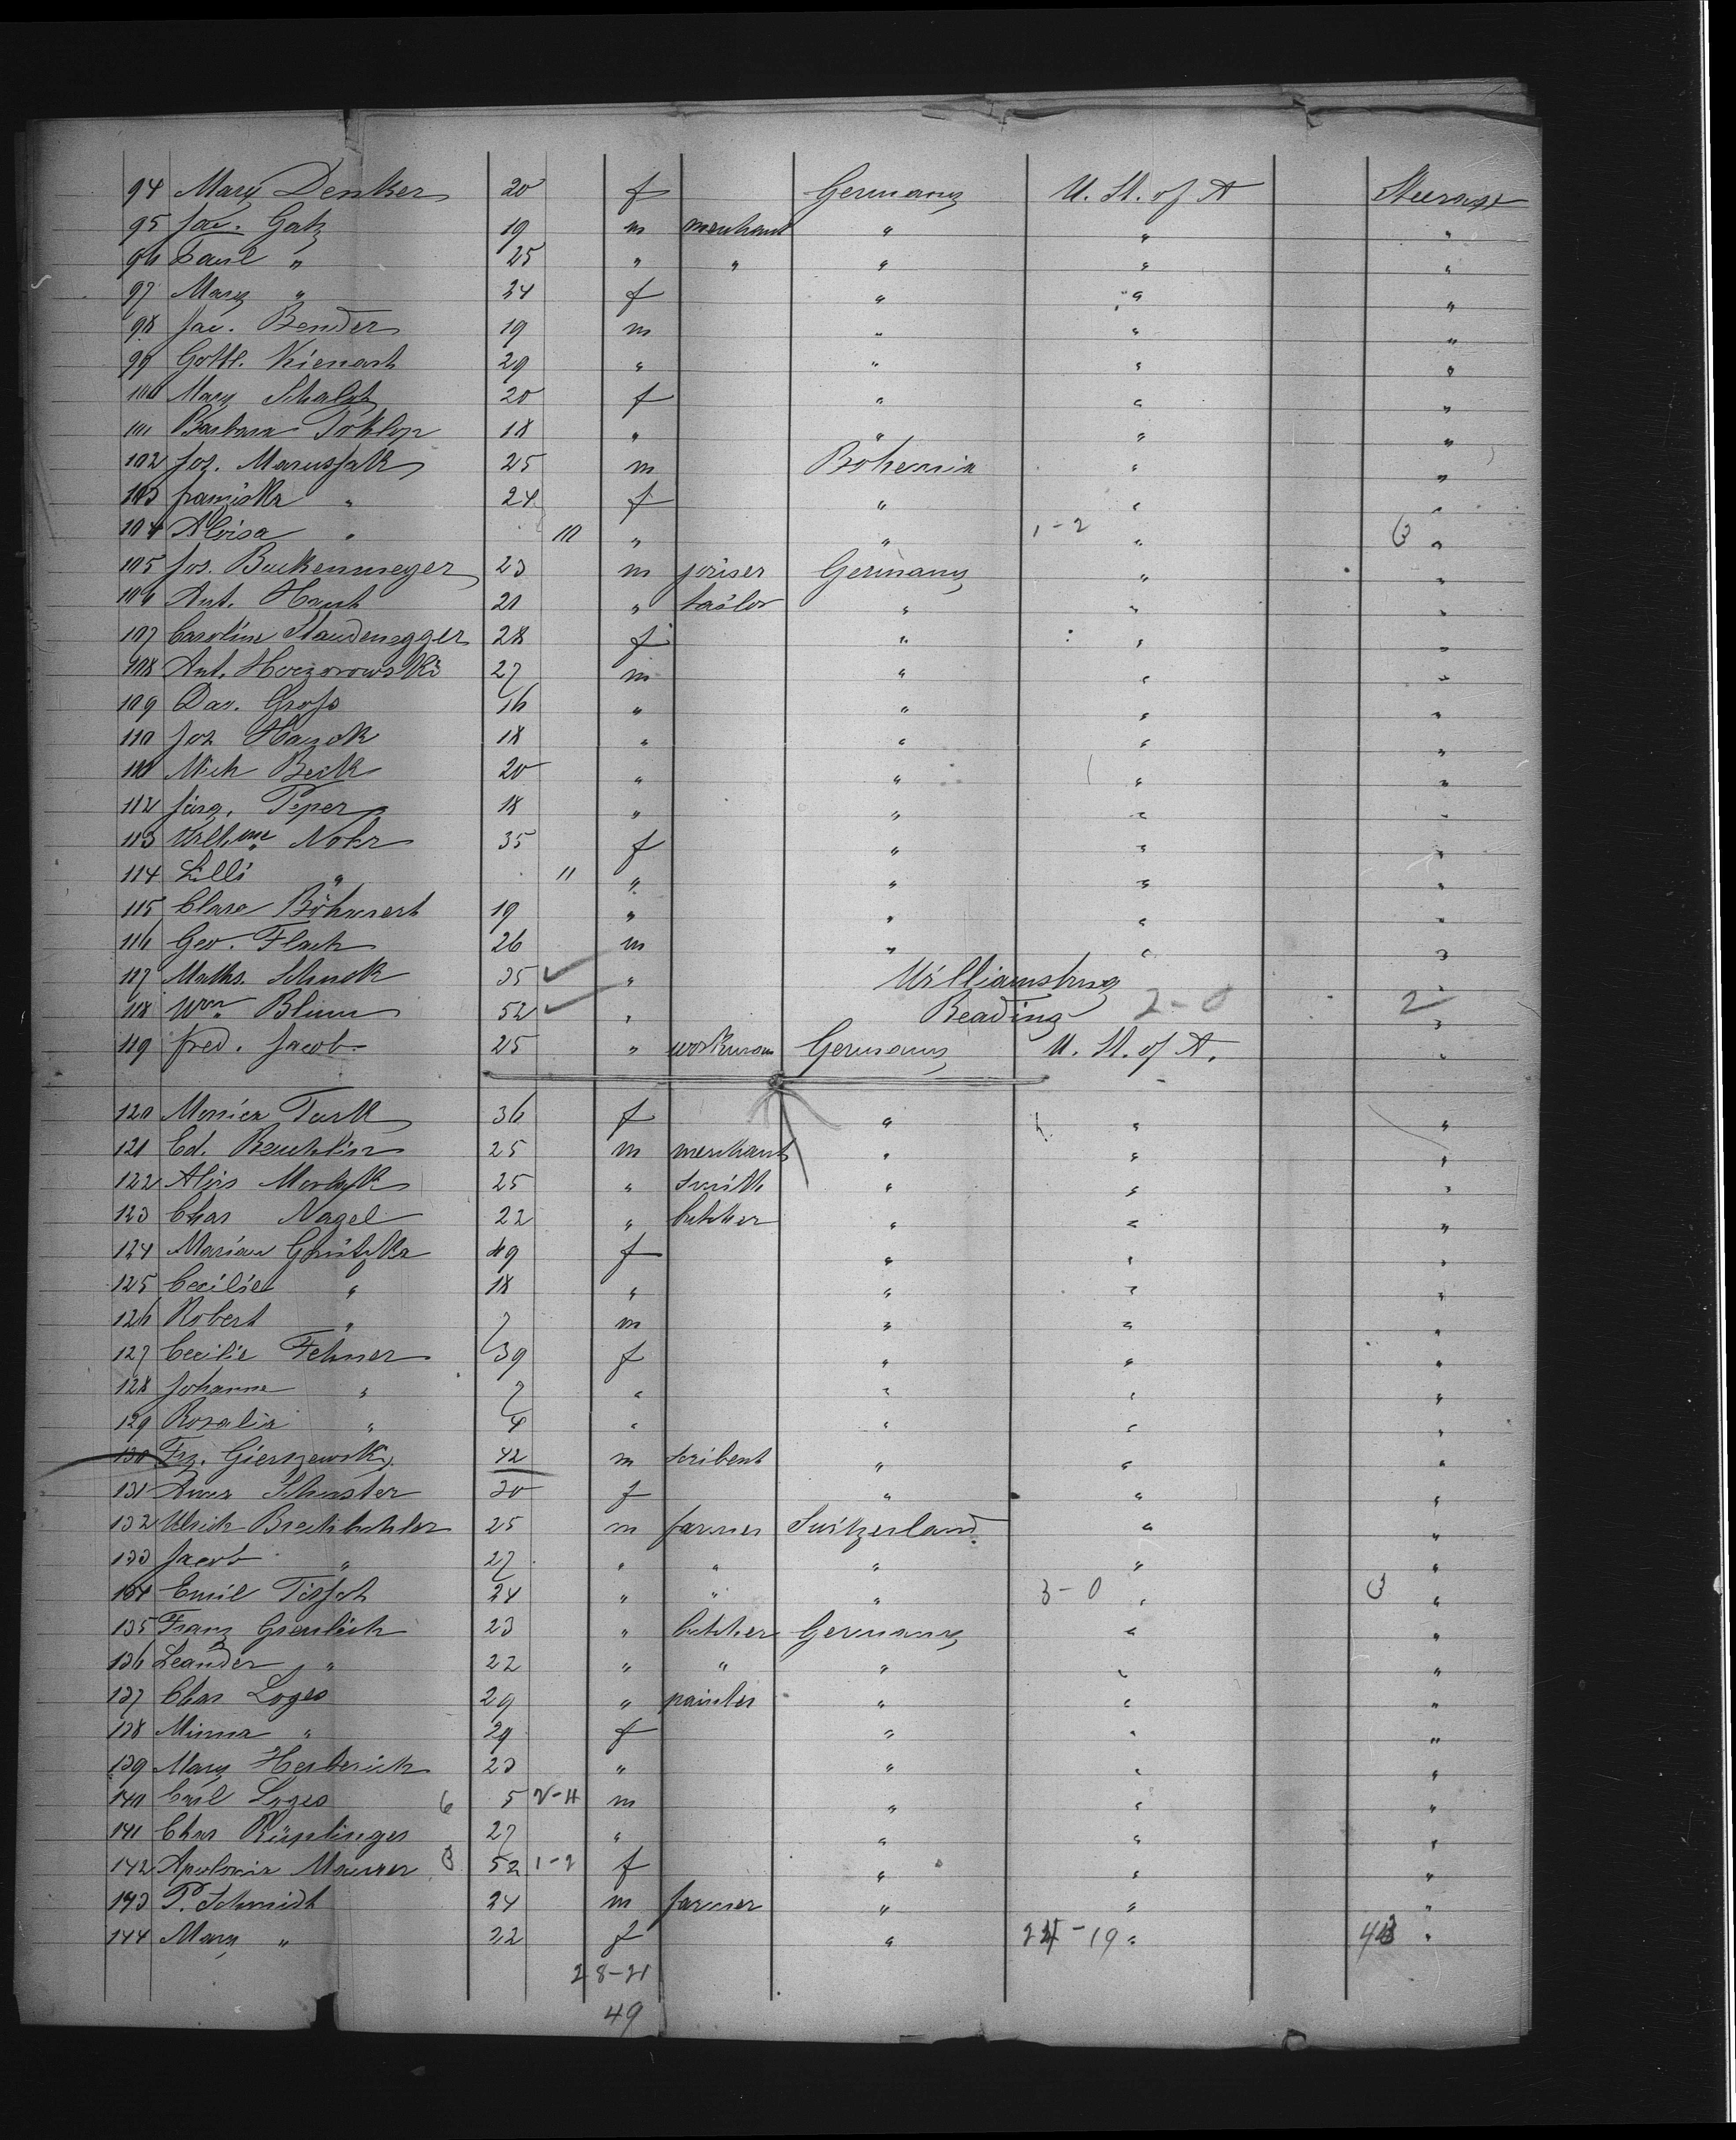 94 Mary Denker 20 f Germany U. St. of A Steerage
95 Jac. Gatz 19 m merchant " " "
96 Paul " 25 " " " " "
97 Mary " 24 f " " "
98 Jac. Bender 19 m " " "
99 Gottl. Kienast 29 " " " "
100 Mary 20 f " " "
101 Barbara Toklop 18 " " " "
102 Jos. Marusjak 25 m Bohemia " "
103 Franziska " 24 f " " "
104 Aloisa " 10 " " 1-2 " 3 "
105 Jos. Buckenmeyer 23 m joiner Germany " "
106 Ant. Hauch 21 " tailor " " "
107 Caroline Staudenegger 28 f " " "
108 Ant. Hoczorowski 27 m " " "
109 Dav. Gross 16 " " " "
110 Jos 18 " " " "
111 Mich Beck 20 " " " "
112 Jürg. Peper 18 " " " "
113 Wilhme Nohr 35 f " " "
114 Lilli " 11 " " " "
115 Clara Böhmert 19 " " " "
116 Geo. Flach 26 m " " "
117 Maths. Schuck 35 " Williamsburg "
118 Wm Blum 52 " Reading 2-0 2 "
119 Fred. Jacob 25 " workman Germany U. St. of A. "
120 Monica Turk 36 f " " "
121 Ed. Reuchlin 25 m merchant " " "
122 Alois 25 " smith " " "
123 Chas Nagel 22 " butcher " " "
124 Marian Grützka 49 f " " "
125 Cecilie " 18 " " " "
126 Robert " 7 m " " "
127 Cecilie Fehner 39 f " " "
128 Johanne " 7 " " " "
129 Rosalia " 4 " " " "
130 Frz. Gierszewski 42 m scribent " " "
131 Anna Schuster 20 f " " "
132 Ulrich 25 m farmer Switzerland " "
133 Jacob " 27 " " " " "
134 Emil 24 " " " 3-0 " 3 "
135 Franz Greulich 23 " butcher Germany " "
136 Leander " 22 " " " " "
137 Chas Loges 29 " painter " " "
138 Minna " 29 f " " "
139 Mary Herberich 23 " " " "
140 Carl Loges 6 5 2-4 m " " "
141 Chas 27 " " " "
142 Apolonia Maurer 3 52 1-2 f " " "
143 P. Schmidt 24 m farmer " " "
144 Mary " 22 f " 24-19 " 43 "
28-21
49